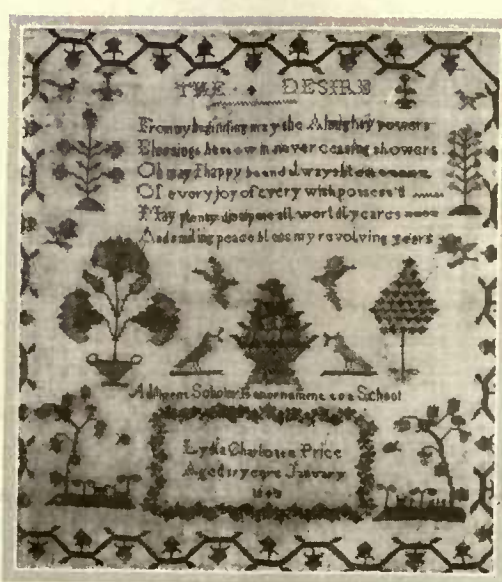 THE DESIRE
From my beginning may the Almighty powers
Blessings bestow in never ceasing showers
Oh may I happy be and always
Of every joy of every wish possess'd
May plenty dissipate all worldly cares
And smiling peace bless my revolving years
A diligent Scholar is an ornament to a School
Lydia Charlotte Price
Aged years January